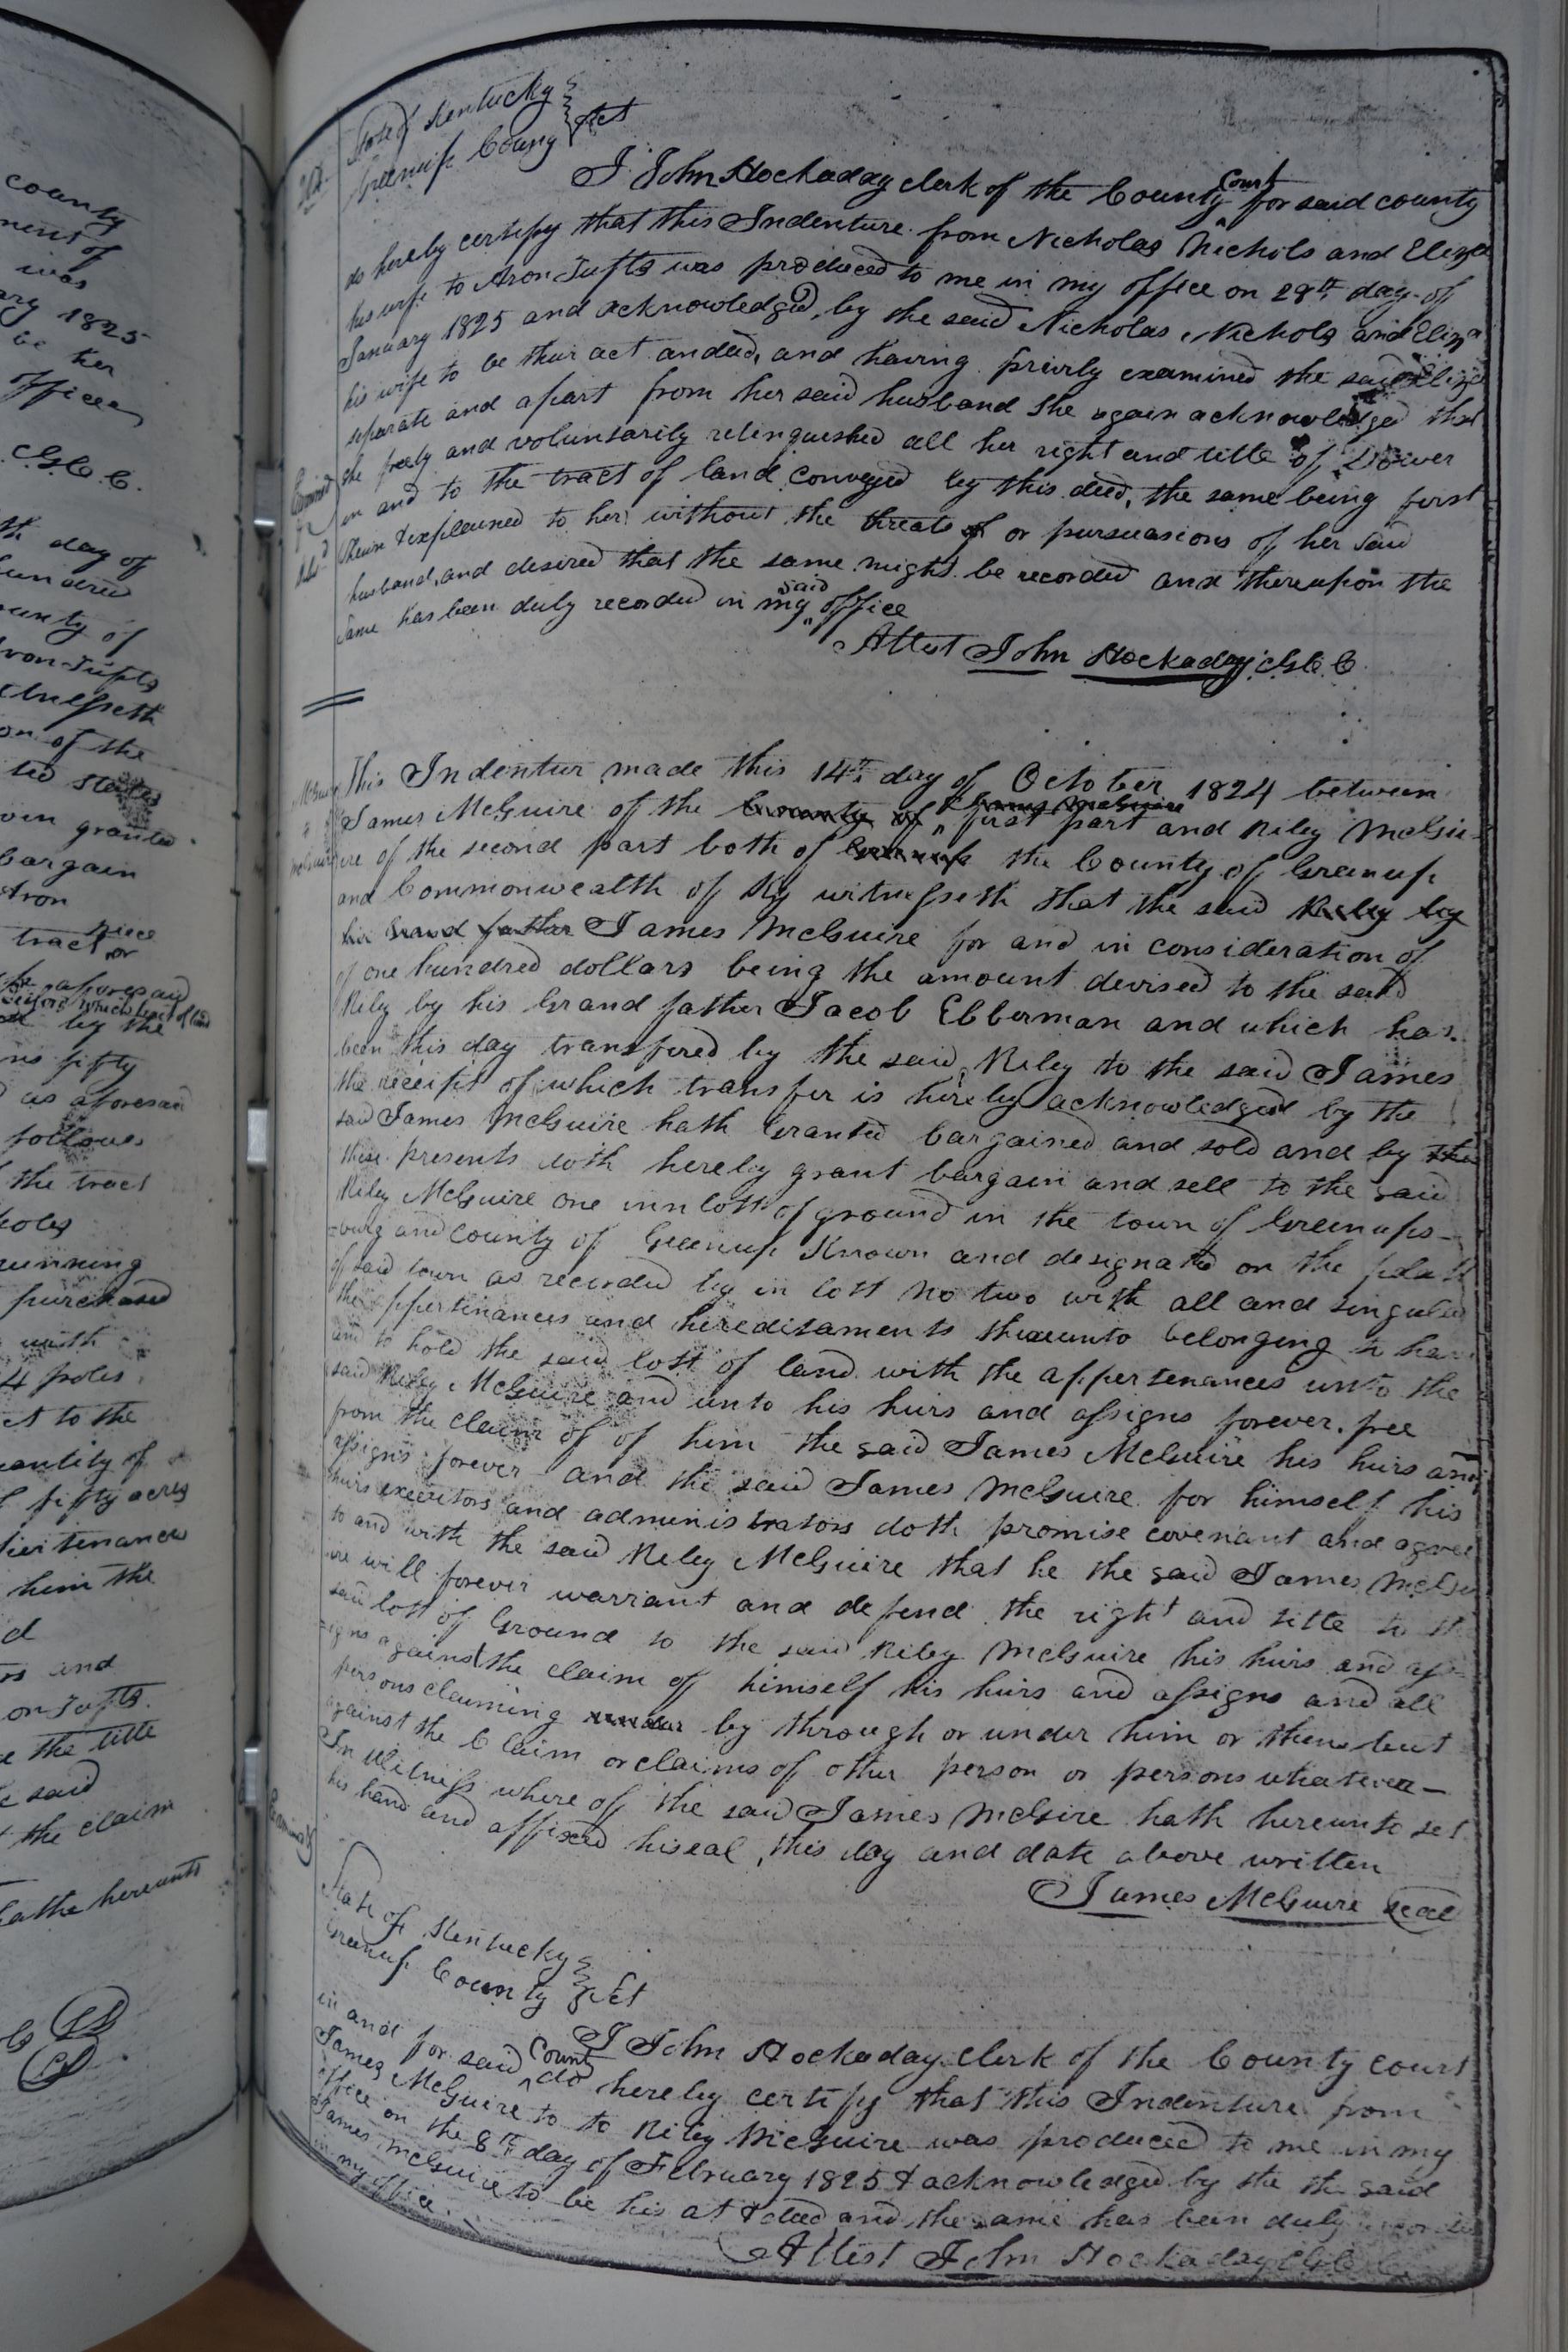 county
ment of
was
ary 1825
be her
office
C.G.C.C.
th day of
hundred
ounty of
Aron Tufts
Witnesseth
on of the
ted States
granted
bargain
Aron
piece
tract or
aforesaid
by the
ns fifty
as aforesaid
follows
the tract
poles
running
purchased
with
4 poles
t to the
uantity of
fifty acres
him the
d
rs and
on Tufts.
the title
said
the claim
hathe hereunto
State of Kentucky
Greenup County Sct
I John Hockaday clerk of the County Court for said county
do hereby certify that this Indenture from Nicholas Nichols and Eliza
his wife to Aron Tufts was produced to me in my office on 28th day of
January 1825 and acknowledged, by the said Nicholas Nichols and Eliza
his wife to be their act and deed, and having privily examined the said Eliza
separate and apart from her said husband she again acknowledged that
she freely and voluntarily relinquished all her right and title of Dower
in and to the tract of land conveyed by this deed, the same being first
shewn & explained to her without the threats of or pursuasions of her said
husband, and desired that the same might be recorded and thereupon the
same has been duly recorded in my said office
Attest John Hockaday C.G.C.C
This Indentur made this 14th day of October 1824 between
James McGuire of the County of James McGuire first part and Riley McGu-
ire of the second part both of Greenup the County of Greenup
and Commonwealth of Ky witnesseth that the said Riley by
his Grand father James McGuire for and in consideration of
of one hundred dollars being the amount devised to the said
Riley by his Grand father Jacob Ebberman and which has
been this day transfered by the said Riley to the said James
the receipt of which transfer is hereby acknowledged by the
said James McGuire hath Granted bargained and sold and by the
these presents doth hereby grant bargain and sell to the said
Riley McGuire one inn lott of ground in the town of Greenups-
-burg and County of Greenup Known and designated on the platt
of said town as recorded by in lott No two with all and singular
the appertinances and hereditaments thereunto belonging to have
and to hold the said lott of land with the appertenances unto the
said Riley McGuire and unto his hiurs and assigns forever. free
from the claim of of him the said James McGuire his hiurs and
assigns forever and the said James McGuire for himself his
hiurs executors and administrators doth promise covenant and agree
to and with the said Riley McGuire that he the said James McGu
ire will forever warrant and defend the right and title to the
said lott of Ground to the said Riley McGuire his hiurs and as-
-signs against the claim of himself his hiurs and assigns and all
persons claiming under by through or under him or them but
against the Claim or claims of other person or persons whatever—
In Witness where of the said James McGuire hath hereunto set
his hand and affixed hiseal, this day and date above written
James McGuire Seal
State of Kentucky
Greenup County Sct
I John Hockaday Clerk of the County court
in and for said County do hereby certify that this Indenture from
James McGuire to to Riley McGuire was produced to me in my
office on the 8th day of February 1825 & acknowledged by the the said
James McGuire to be his at & deed and the same has been duly recorded
in my office.
Attest John Hockaday C.G.C.C.